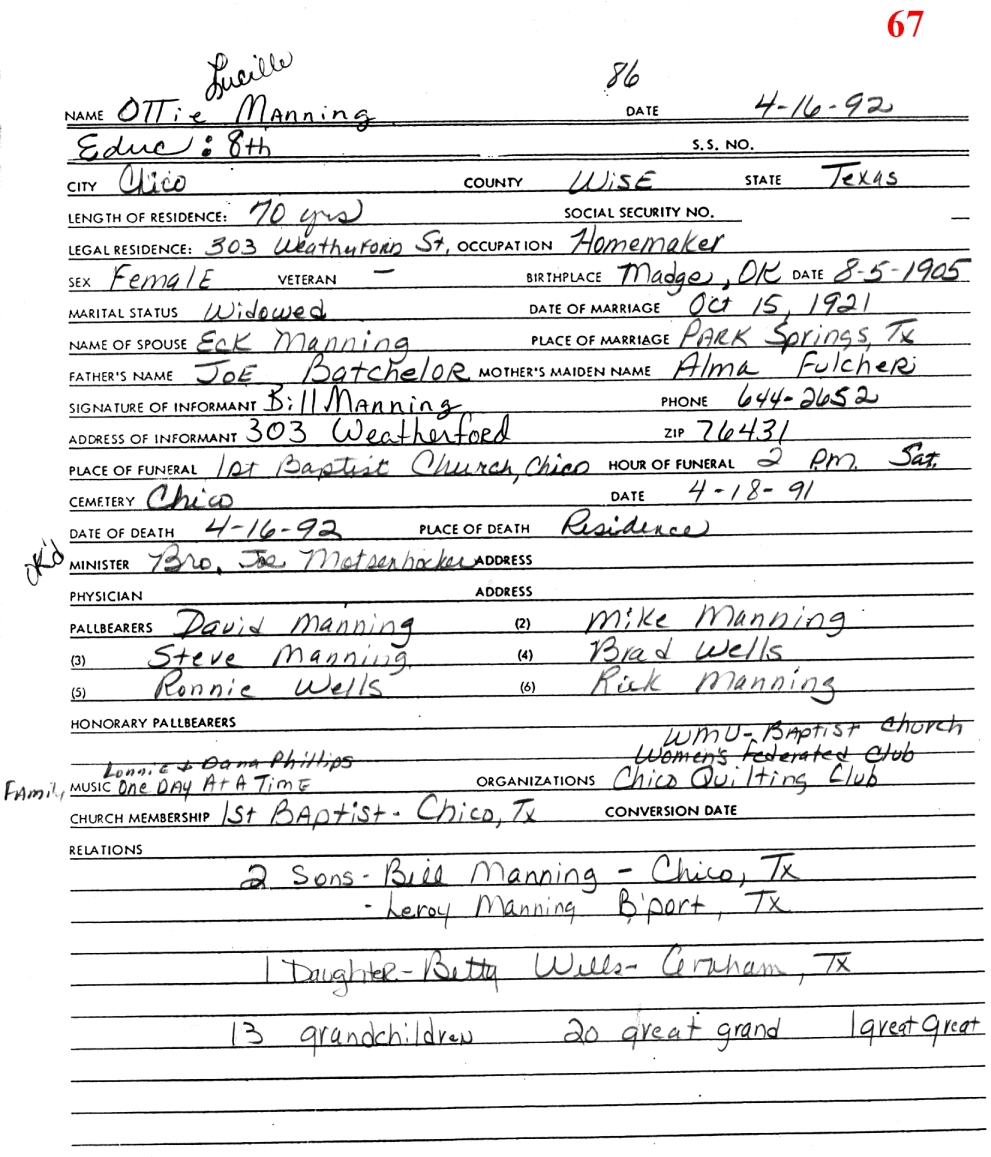 67
Lucille
86
NAME OTTie Manning DATE 4-16-92
Educ: 8th S.S. NO.
CITY Chico COUNTY WISE STATE Texas
LENGTH OF RESIDENCE: 70 yrs SOCIAL SECURITY NO. —
LEGAL RESIDENCE: 303 Weatherford St, OCCUPATION Homemaker
SEX Female VETERAN — BIRTHPLACE Madge, OK DATE 8-5-1905
MARITAL STATUS Widowed DATE OF MARRIAGE Oct 15, 1921
NAME OF SPOUSE Eck Manning PLACE OF MARRIAGE PARK Springs, Tx
FATHER'S NAME JOE Batchelor MOTHER'S MAIDEN NAME Alma Fulcher
SIGNATURE OF INFORMANT Bill Manning PHONE 644-2652
ADDRESS OF INFORMANT 303 Weatherford ZIP 76431
PLACE OF FUNERAL 1st Baptist Church, Chico HOUR OF FUNERAL 2 P.M. Sat.
CEMETERY Chico DATE 4-18-91
DATE OF DEATH 4-16-92 PLACE OF DEATH Residence
OK'd MINISTER Bro. Joe Motsenbocker ADDRESS
PHYSICIAN ADDRESS
PALLBEARERS David Manning (2) Mike Manning
(3) Steve Manning (4) Brad Wells
(5) Ronnie Wells (6) Rick Manning
HONORARY PALLBEARERS WMU-BAPtist Church
Lonnie & Dana Phillips Women's Federated Club
Family MUSIC One DAY At A TimE ORGANIZATIONS Chico Quilting Club
CHURCH MEMBERSHIP 1St BAptist- Chico, Tx CONVERSION DATE
RELATIONS
2 Sons- Bill Manning - Chico, Tx
- Leroy Manning B'port, Tx
1 Daughter- Betty Wells- Graham, TX
13 grandchildren 20 great grand 1 great great